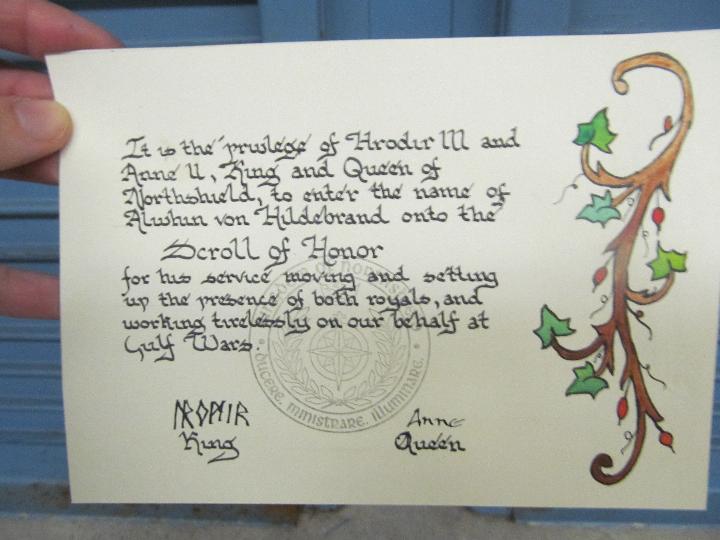 It is the privilege of Hrodir III and
Anne II, King and Queen of
Northshield, to enter the name of
Alwhin von Hildebrand onto the
Scroll of Honor
for his service moving and setting
up the presence of both royals, and
working tirelessly on our behalf at
Gulf Wars.
OF NORTHSHIELD
DUCERE, MINISTRARE, ILLUMINARE.
ᚺᚱᛟᛞᛁᚱ
King
Anne
Queen